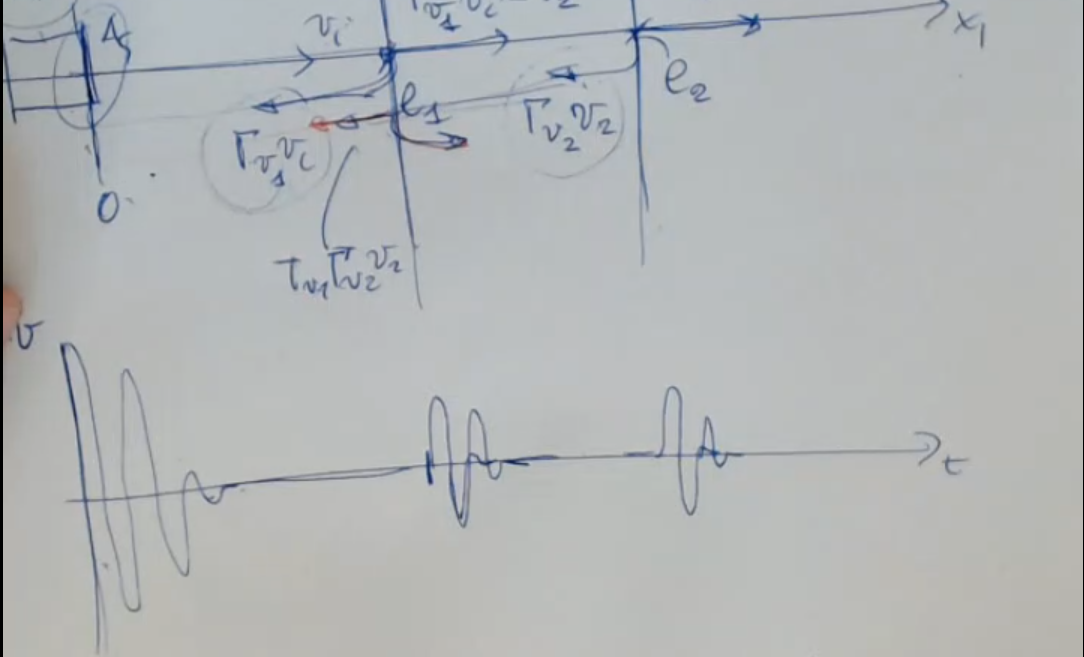 v_i
x_1
l_1
l_2
Γ_{v_1} v_i
Γ_{v_2} v_2
O
T_{v_1} Γ_{v_2} v_2
v
t